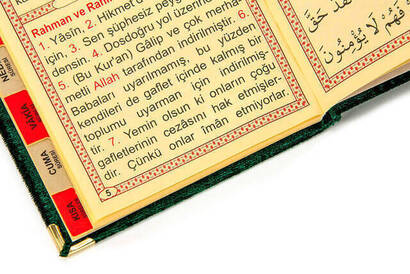 Rahman ve Rah
1. Yâsîn. 2. Hikmet
için, 3. Sen şüphesiz peyg
densin. 4. Dosdoğru yol üzerin
5. (Bu Kur'an) Gâlip ve çok merha
metli Allah tarafından indirilmiştir. 6.
Babaları uyarılmamış, bu yüzden
kendileri de gaflet içinde kalmış bir
toplumu uyarman için indirilmiş-
tir. 7. Yemin olsun ki onların çoğu
gafletlerinin cezasını hak etmişler-
dir. Çünkü onlar îmân etmiyorlar.
5
فَهُمْ لَا يُؤْمِنُونَ
VÂKIA
CUMA
SURESİ
KISA